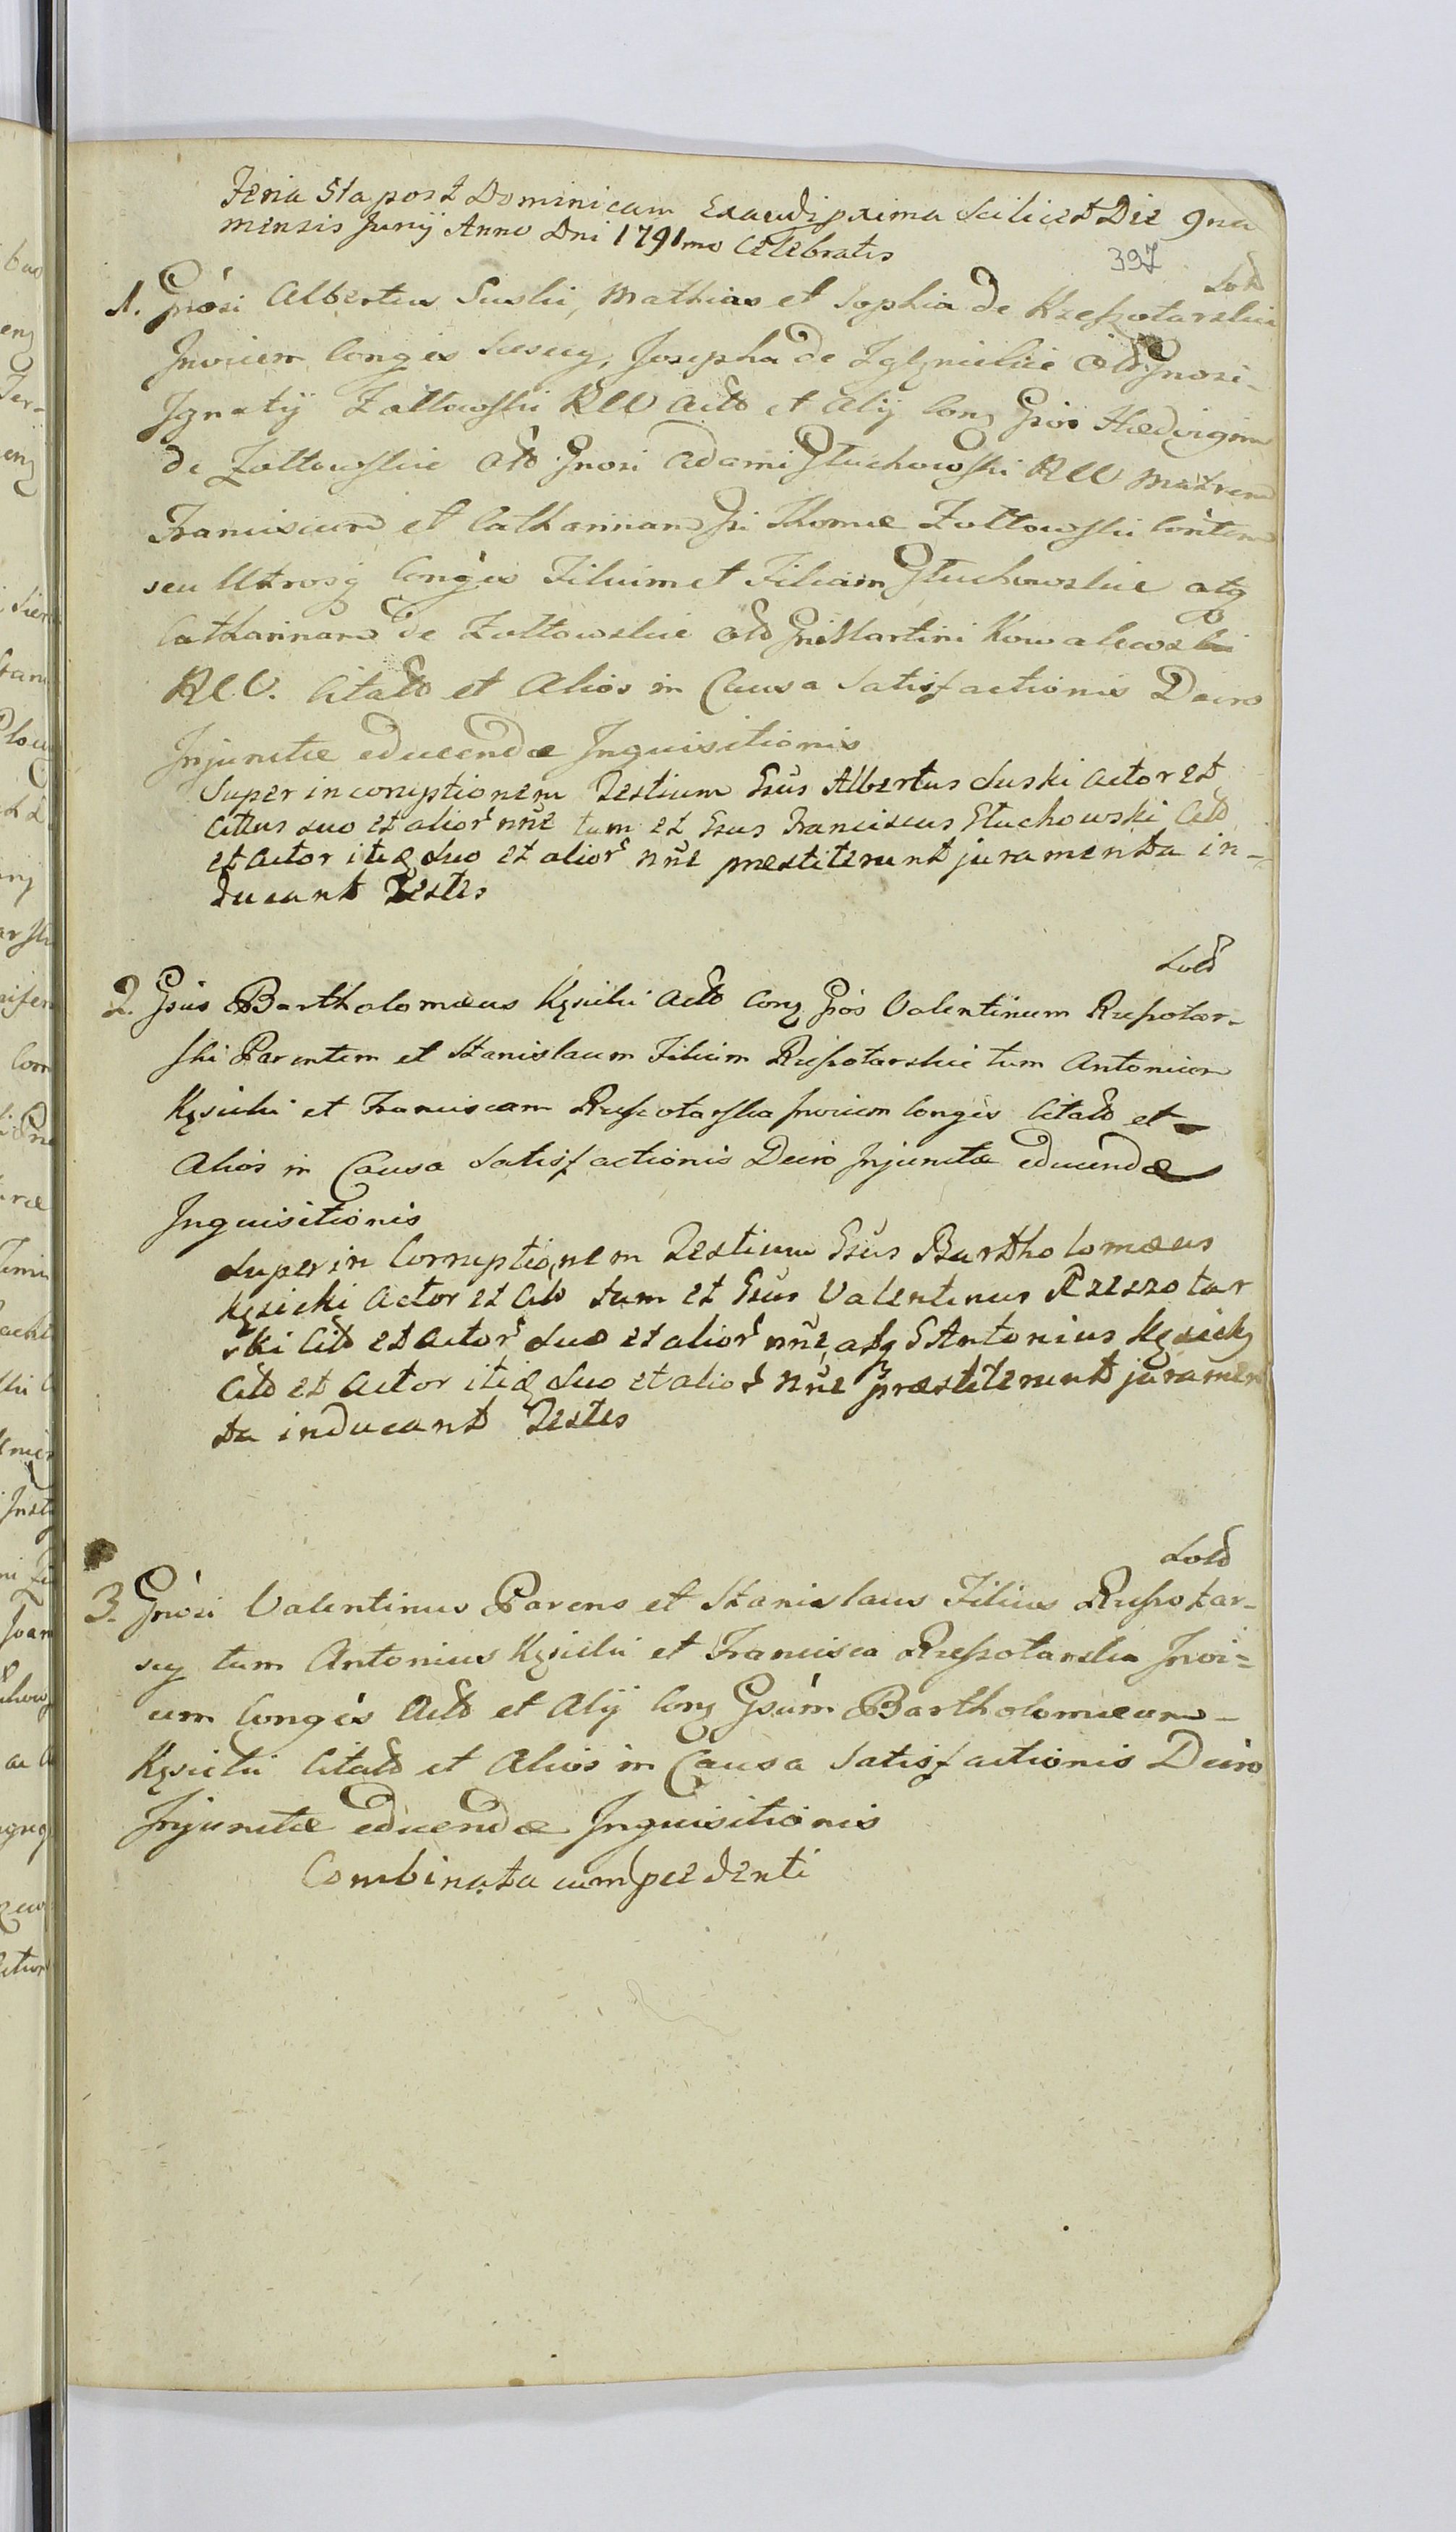 Feria 5ta post Dominicam Exaudi proxima scilicet Die 9na
mensis Junij Anno Dni 1791mo Celebratis
397
Sold
1. Gnosi Albertus Suski, Mathias et Sophia de Rzeszotarskie
Invicem Conges Suscy, Josepha de Zglynickie Gnosi
Ignatij Zołtowski RCC Acto et Alij Con Gsos Hedvigem
de Zołtowskie Gnosi Adami Głuchowski RCC Matrem
Franciscum et Catharinam Gsi Thomae Zołtowski
seu Utrosq Conges Filium et Filiam Głuchowskie atq
Catharinam de Zołtowskie Gsi Martini Kowalewski
RCC. Citato et Alios in Causa Satisfactionis Dciro
Injunctae educendae Inquisitionis
Super incorruptionem Testium Gsus Albertus Suski Actor et
Cittus suo et alior nñe tum et Gsus Franciscus Głuchowski Cito
et Actor itiq suo et alior nñe praestiterunt juramenta in-
ducant Testes
Sold
2. Gsus Bartholomaeus Kęsicki Acto Con Gsos Valentinum Rzeszotar-
ski Parentem et Stanislaum Filium Rzeszotarskie tum Antonium
Kęsicki et Franciscam Rzeszotarska Invicem Conges Citato et
Alios in Causa Satisfactionis Dciro Injunctae educendae
Inquisitionis
Super in Corruptionem Testium Gsus Bartholomaeus
Kęsicki Actor et Cito tum et Gsus Valentinus Rzeszotar
ski Cito et Actor suo et alior nñe, atq G Antonius Kęsicki
Cito et Actor itiq suo et alior nñe praestiterunt juramen
ta inducant Testes
Sold
3. Gnosi Valentinus Parens et Stanislaus Filius Rzeszotar-
scy tum Antonius Kęsicki et Francisca Rzeszotarska Invi=
cem Conges Acto et Alij Con Gsum Bartholomaeum-
Kęsicki Citato et Alios in Causa Satisfactionis Dciro
Injunctae educendae Inquisitionis
Combinata cum pcedenti